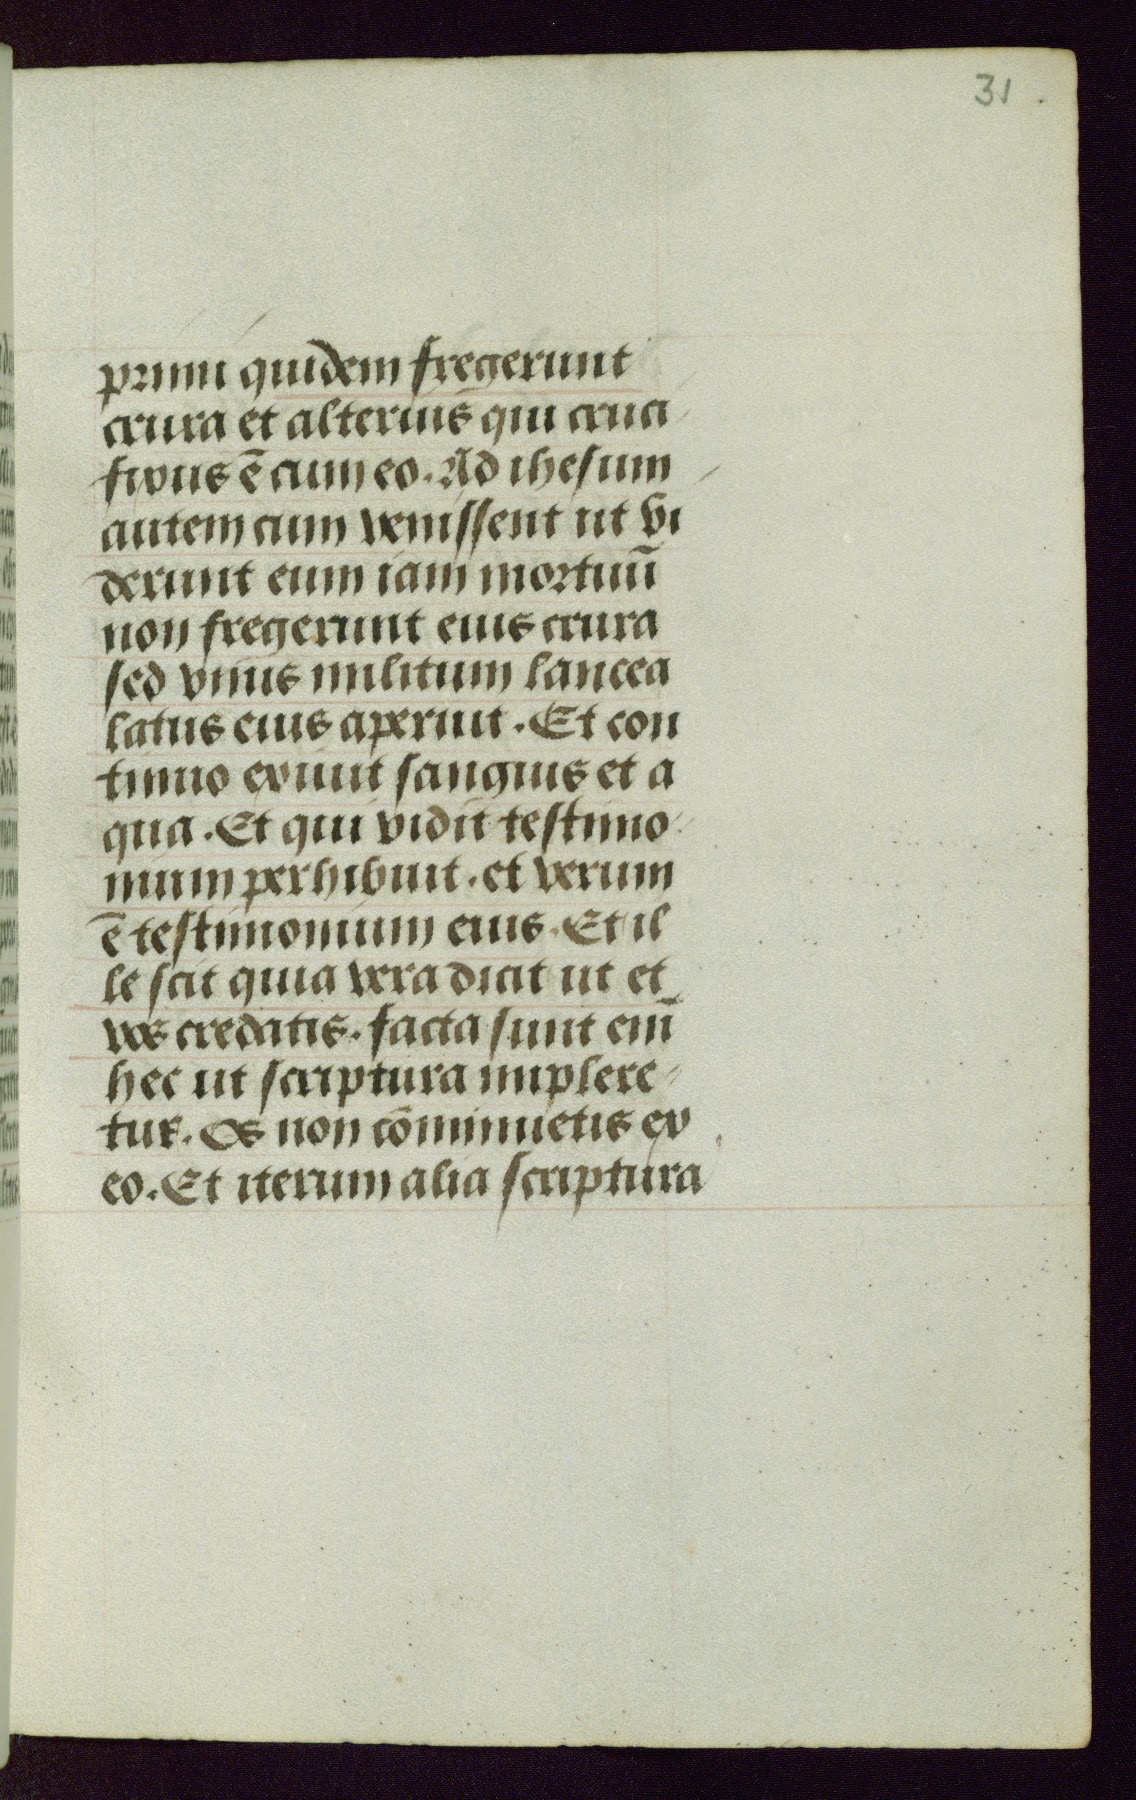 31.
primi quidem fregerunt
crura et alterius qui cruci
fixus ē cum eo. Ad ihesum
autem cum venissent ut vi
derunt eum iam mortuū
non fregerunt eius crura
sed vnus militum lancea
latus eius aperuit. Et con
tinuo exiuit sanguis et a
qua. Et qui vidit testimo
nium perhibuit. et verum
ē testimonium eius. Et il
le scit quia vera dicit ut et
vos creditis. facta sunt eni̅
hec ut scriptura implere
tur. Os non cōminuetis ex
eo. Et iterum alia scriptura